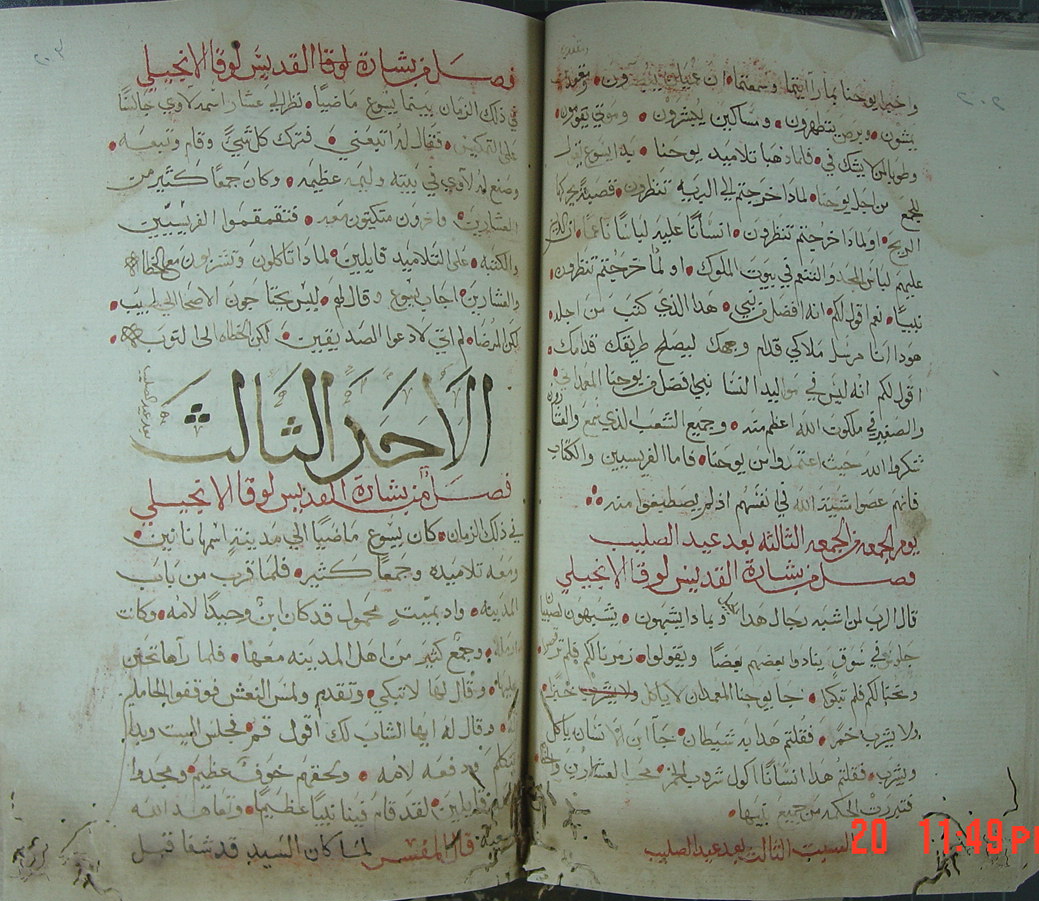 واخبرا يوحنا بما رايتما وسمعتما ان عميان يبصرون ومقعدين
يمشون وبرص يتطهرون ومساكين يُبشرون وموتي تقومون
وطوبا لمن لا يشك في فلما ذهبا تلاميذ يوحنا بدا ايسوع يقول
للجمع من اجل يوحنا لماذا خرجتم الي البريه تنظرون قصبة يحركها
الريح او لماذا خرجتم تنظرون انسانًا عليه لباسًا ناعمًا ان الذين
عليهم لباس المجد والتنعم في بيوت الملوك او لماذا خرجتم تنظرون
نبيًا نعم اقول لكم انه افضل من نبي هذا الذي كتب من اجله
هودا انا مرسل ملاكي قدام وجهك ليصلح طريقك قدامك
اقول لكم انه ليس في مواليد النسا نبي افضل من يوحنا المعمدان
والصغير في ملكوت الله اعظم منه وجميع الشعب الذي سمع والعشارون
شكروا الله حيث اعتمدوا من يوحنا فاما الفريسيين والكتاب
فانهم عصوا مشيئة الله في نفسهم اذ لم يصطبغوا منه
يوم الجمعه من الجمعه الثالثه بعد عيد الصليب
فصل من بشارة القديس لوقا الانجيلي
قال الرب لمن اشبه رجال هذا وبماذا يشبهون يشبهون لصبيانًا
جلوس في سوق ينادوا بعضهم بعضًا ويقولوا زمرنا لكم فلم ترقصوا
ونحنا لكم فلم تبكوا جا يوحنا المعمدان لا ياكل ولا يشرب خبزًا
ولا يشرب خمرًا فقلتم هذا به شيطان جآ ابن الانسان ياكل
ويشرب فقلتم هذا انسانًا اكول شروب الخمر محب العشارون والخطاه
فتبررت الحكمه من جميع بنيها
السبت الثالث بعد عيد الصليب
20 11:49 P
فصل من بشارة لوقا القديس لوقا الانجيلي
في ذلك الزمان بينما يسوع ماضيًا نظر الي عشار اسمه لاوي جالسًا
علي التمكيس فقال له اتبعني فترك كل شيً وقام وتبعه
وصنع له لاوي في بيته وليمه عظيمه وكان جمعًا كثير من
العشارين واخرون متكيون معه فتقمقموا الفريسيين
والكتبه علي التلاميذ قايلين لماذا تاكلون وتشربون مع الخطاه
والعشارين اجاب يسوع وقال لهم ليس يحتاجون الاصحا الي طبيب
لكن المرضا لم اتي لادعوا الصديقين لكن الخطاه الي التوبه
الاحد الثالث
بعد عيد الصليب
فصل من بشارة القديس لوقا الانجيلي
في ذلك الزمان كان يسوع ماضيًا الي مدينة اسمها نانين
ومعه تلاميذه وجمعًا كثير فلما قرب من باب
المدينه واذ بميت محمول قد كان ابن وحيدًا لامه وكانت
ارمله وجمع كثير من اهل المدينه معها فلما رآها تحنن
عليها وقال لها لا تبكي وتقدم ولمس النعش فوقفوا الحاملين
له وقال له ايها الشاب لك اقول قم فجلس الميت وبدا
يتكلم فدفعه لامه ولحقهم خوف عظيم ومجدوا
الله قايلين لقد قام فينا نبيًا عظيمًا وتعاهد الله
شعبه قال المفسر لما كان السيد قد شفا قبل